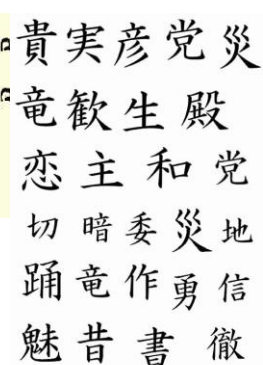 貴実彦党災
竜歓生殿
恋主和党
切暗委災地
踊竜作勇信
魅昔書徹